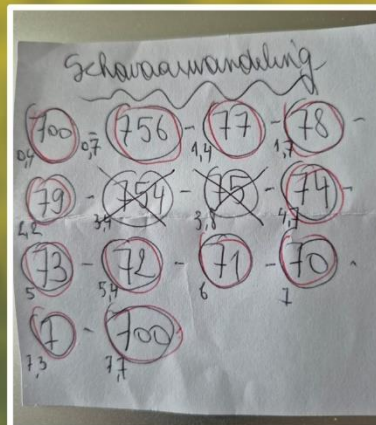 Schovaarwandeling
700 - 756 - 77 - 78 -
0,4 0,7 1,4 1,7
79 - 754 - 75 - 74 -
2,2 3,1 3,8 4,7
73 - 72 - 71 - 70 -
5 5,4 6 7
7 - 700
7,3 7,7